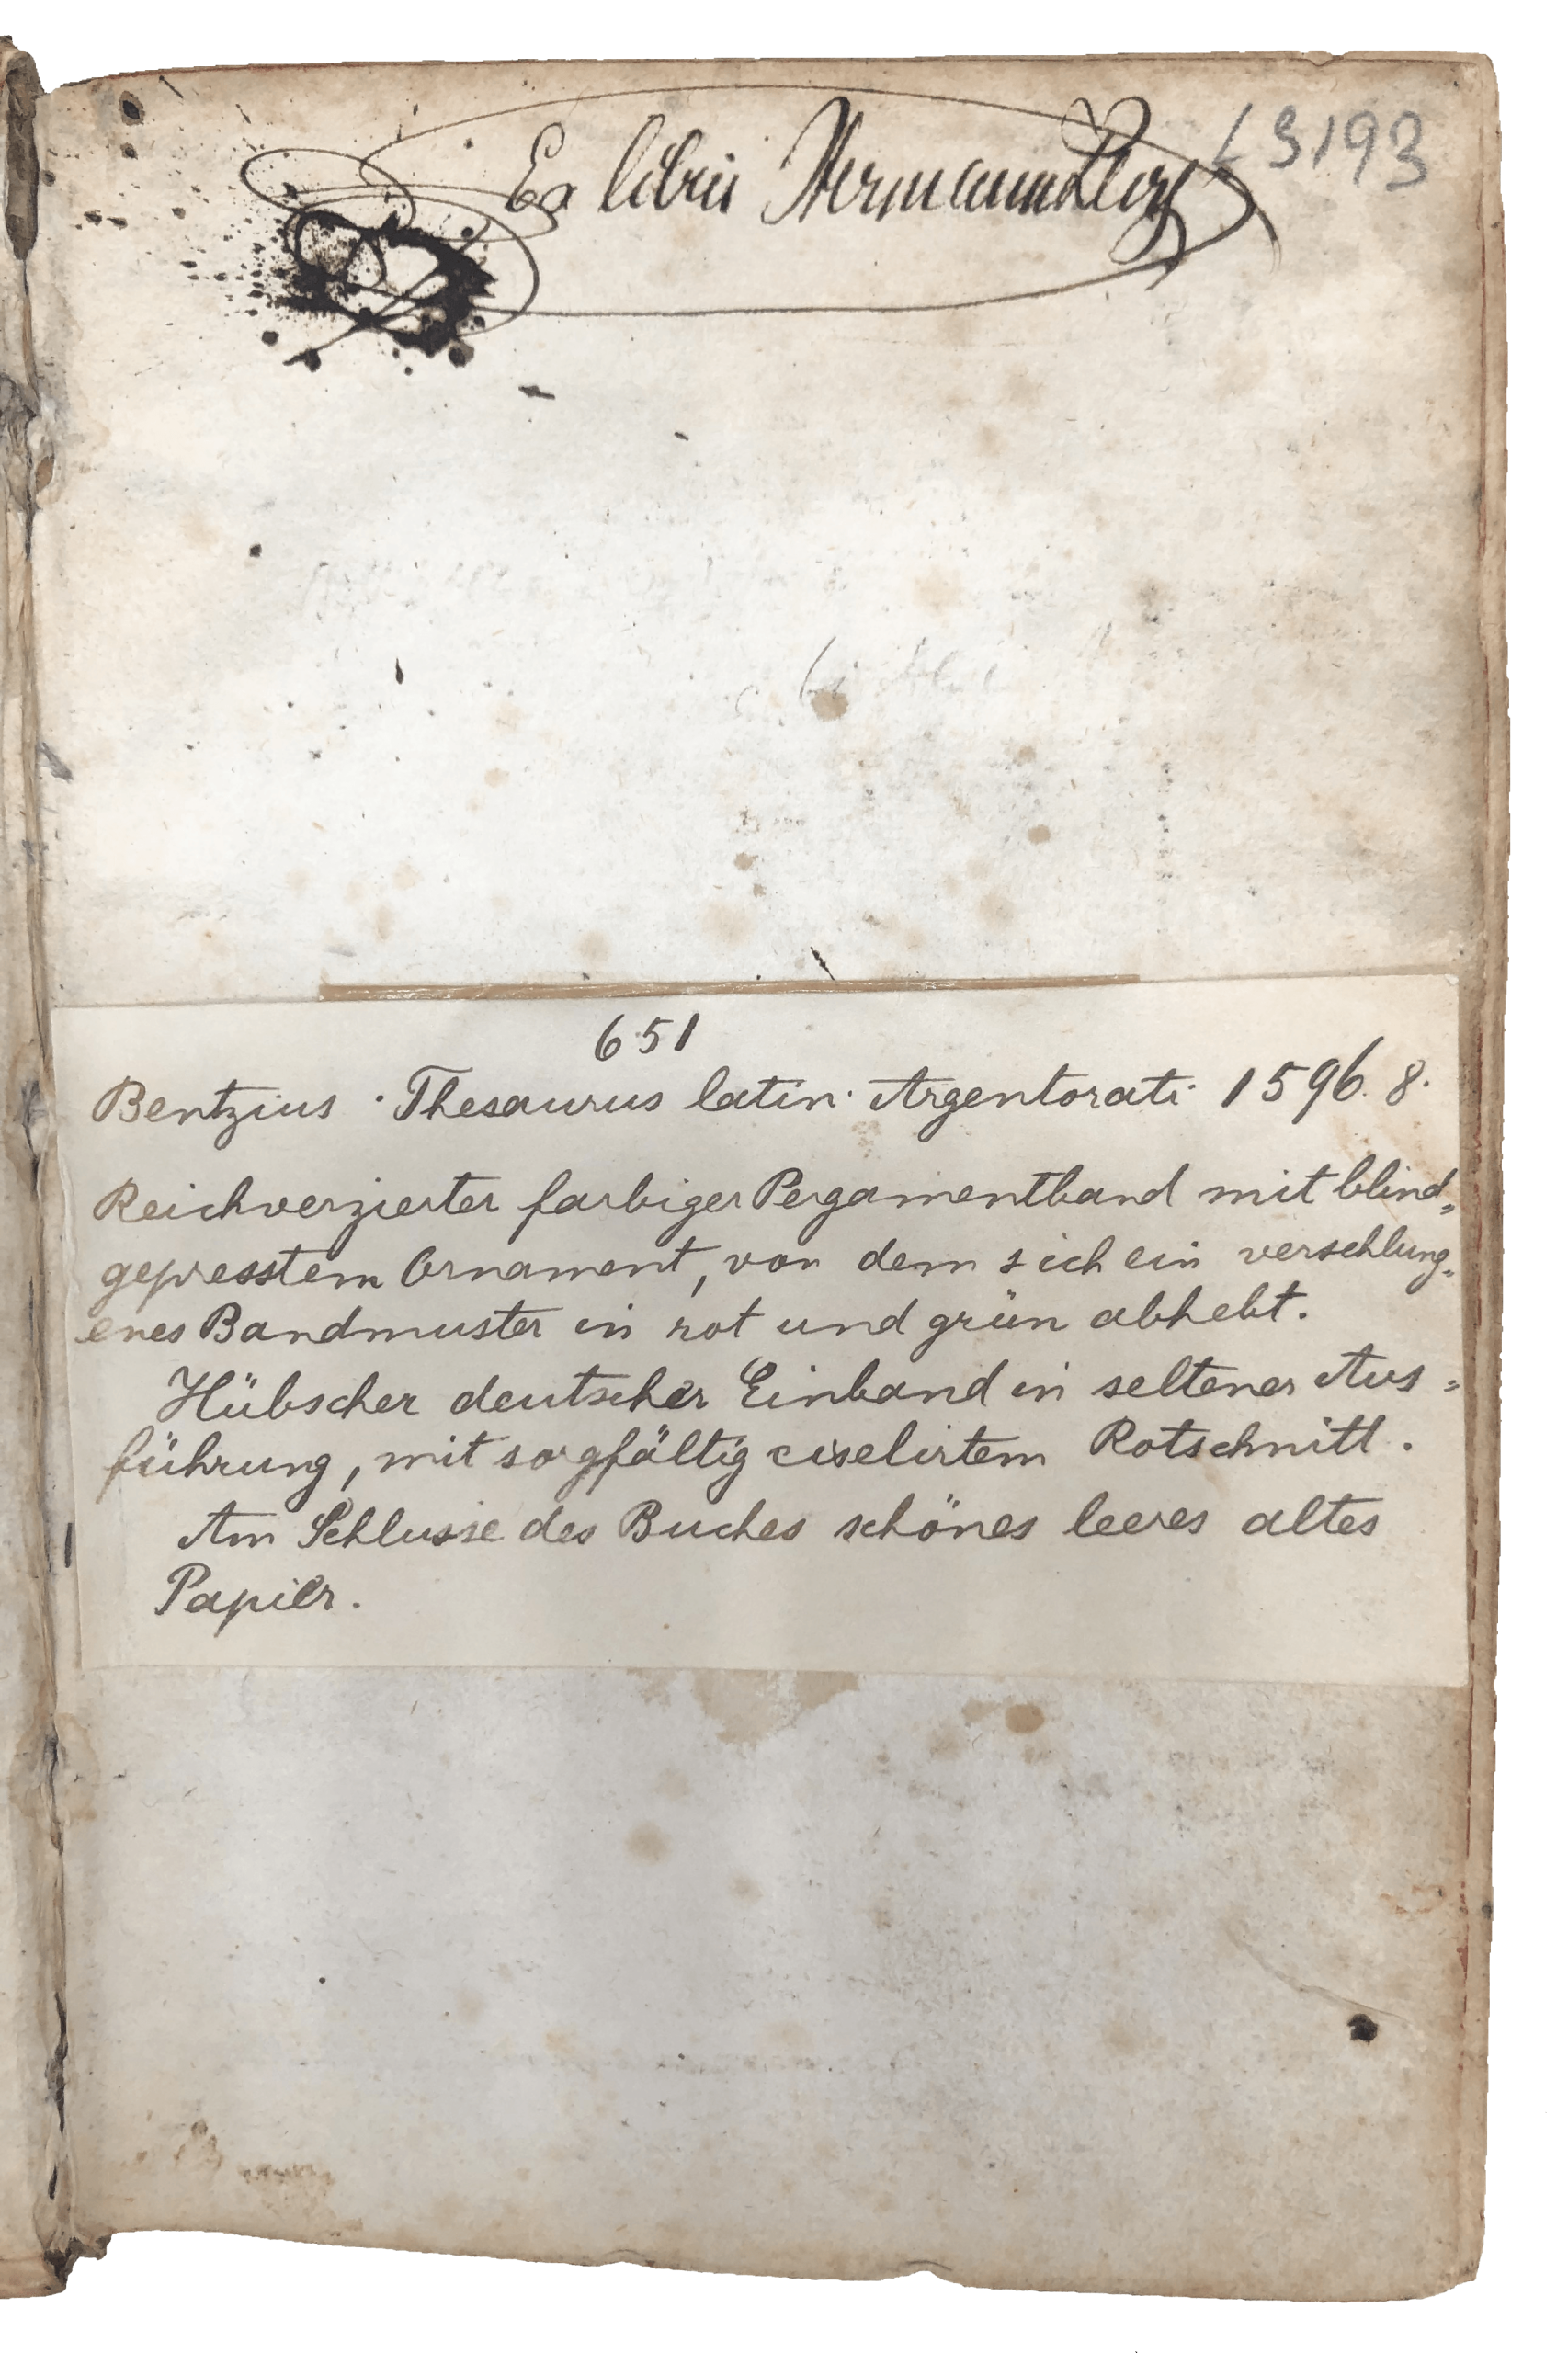 Ex libris Hermann
L S 193
651
Bentzius · Thesaurus latin · Argentorati · 1596. 8.
Reichverzierter farbiger Pergamentband mit blind„
gepresstem Ornament, von dem sich ein verschlung„
enes Bandmuster in rot und grün abhebt.
Hübscher deutscher Einband in seltener Aus„
führung, mit sorgfältig ciselirtem Rotschnitt.
Am Schlusse des Buches schönes leeres altes
Papier.